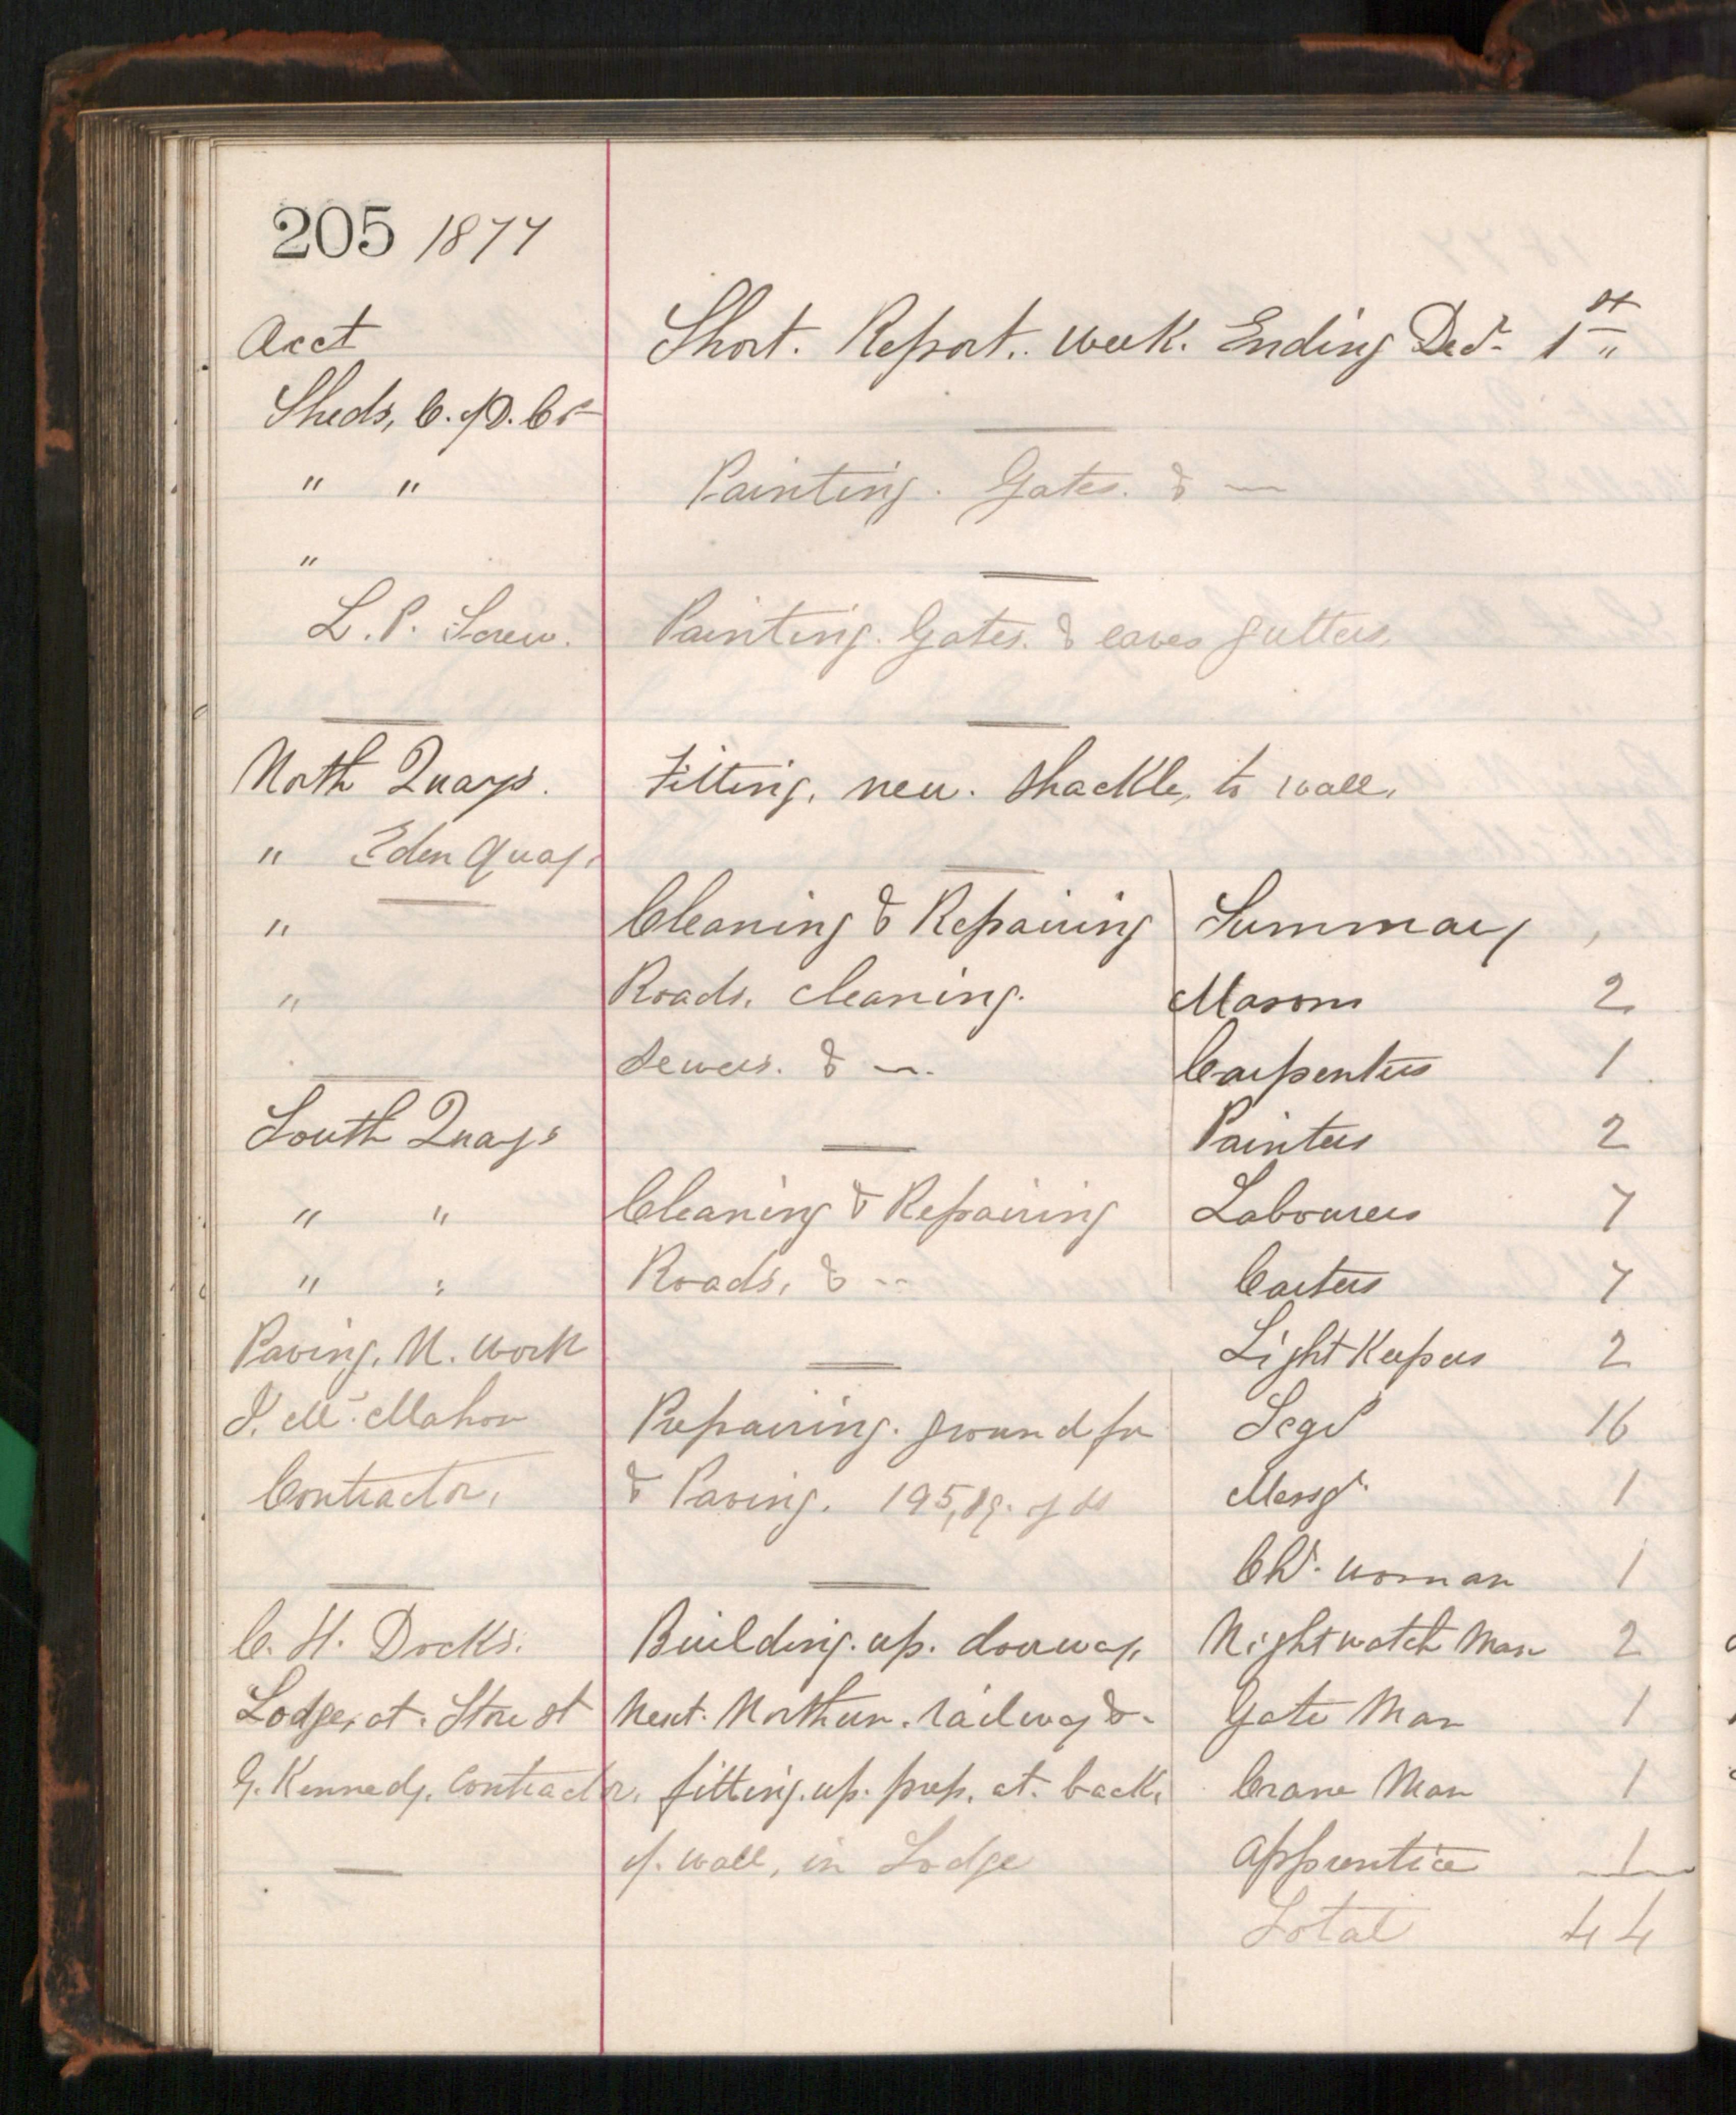 205 1877
Acct
Short. Report. week. Ending Decr 1st
Sheds, C. of D. Co
" "
Painting. Gates. & —
"
L.P. Screw.
Painting. Gates. & eaves gutters,
North Quays.
Fitting. new. Shackle, to wall.
" Eden Quay.
" Cleaning & Repairing
Summary
" Roads. cleaning.
Masons 2
Sewers. & —.
Carpenters 1
South Quays
Painters 2
" " Cleaning & Repairing
Labourers 7
" " Roads, & --
Carters 7
Paving. N. Work
Light Keepers 2
McMahon
Prepairing. ground for
16
Contractor.
& Paving. 195, sq. yds
Messr. 1
Chr. woman 1
C. H. Docks.
Building. up. doorway.
Night watch Man 2
Lodge, at. Store St
Next. Northern. railway &-
Gate Man 1
G. Kennedy. Contractor.
fitting. up. prep. at. back.
Crane Man 1
of. wall, in Lodge
Apprentice 1
Total 44